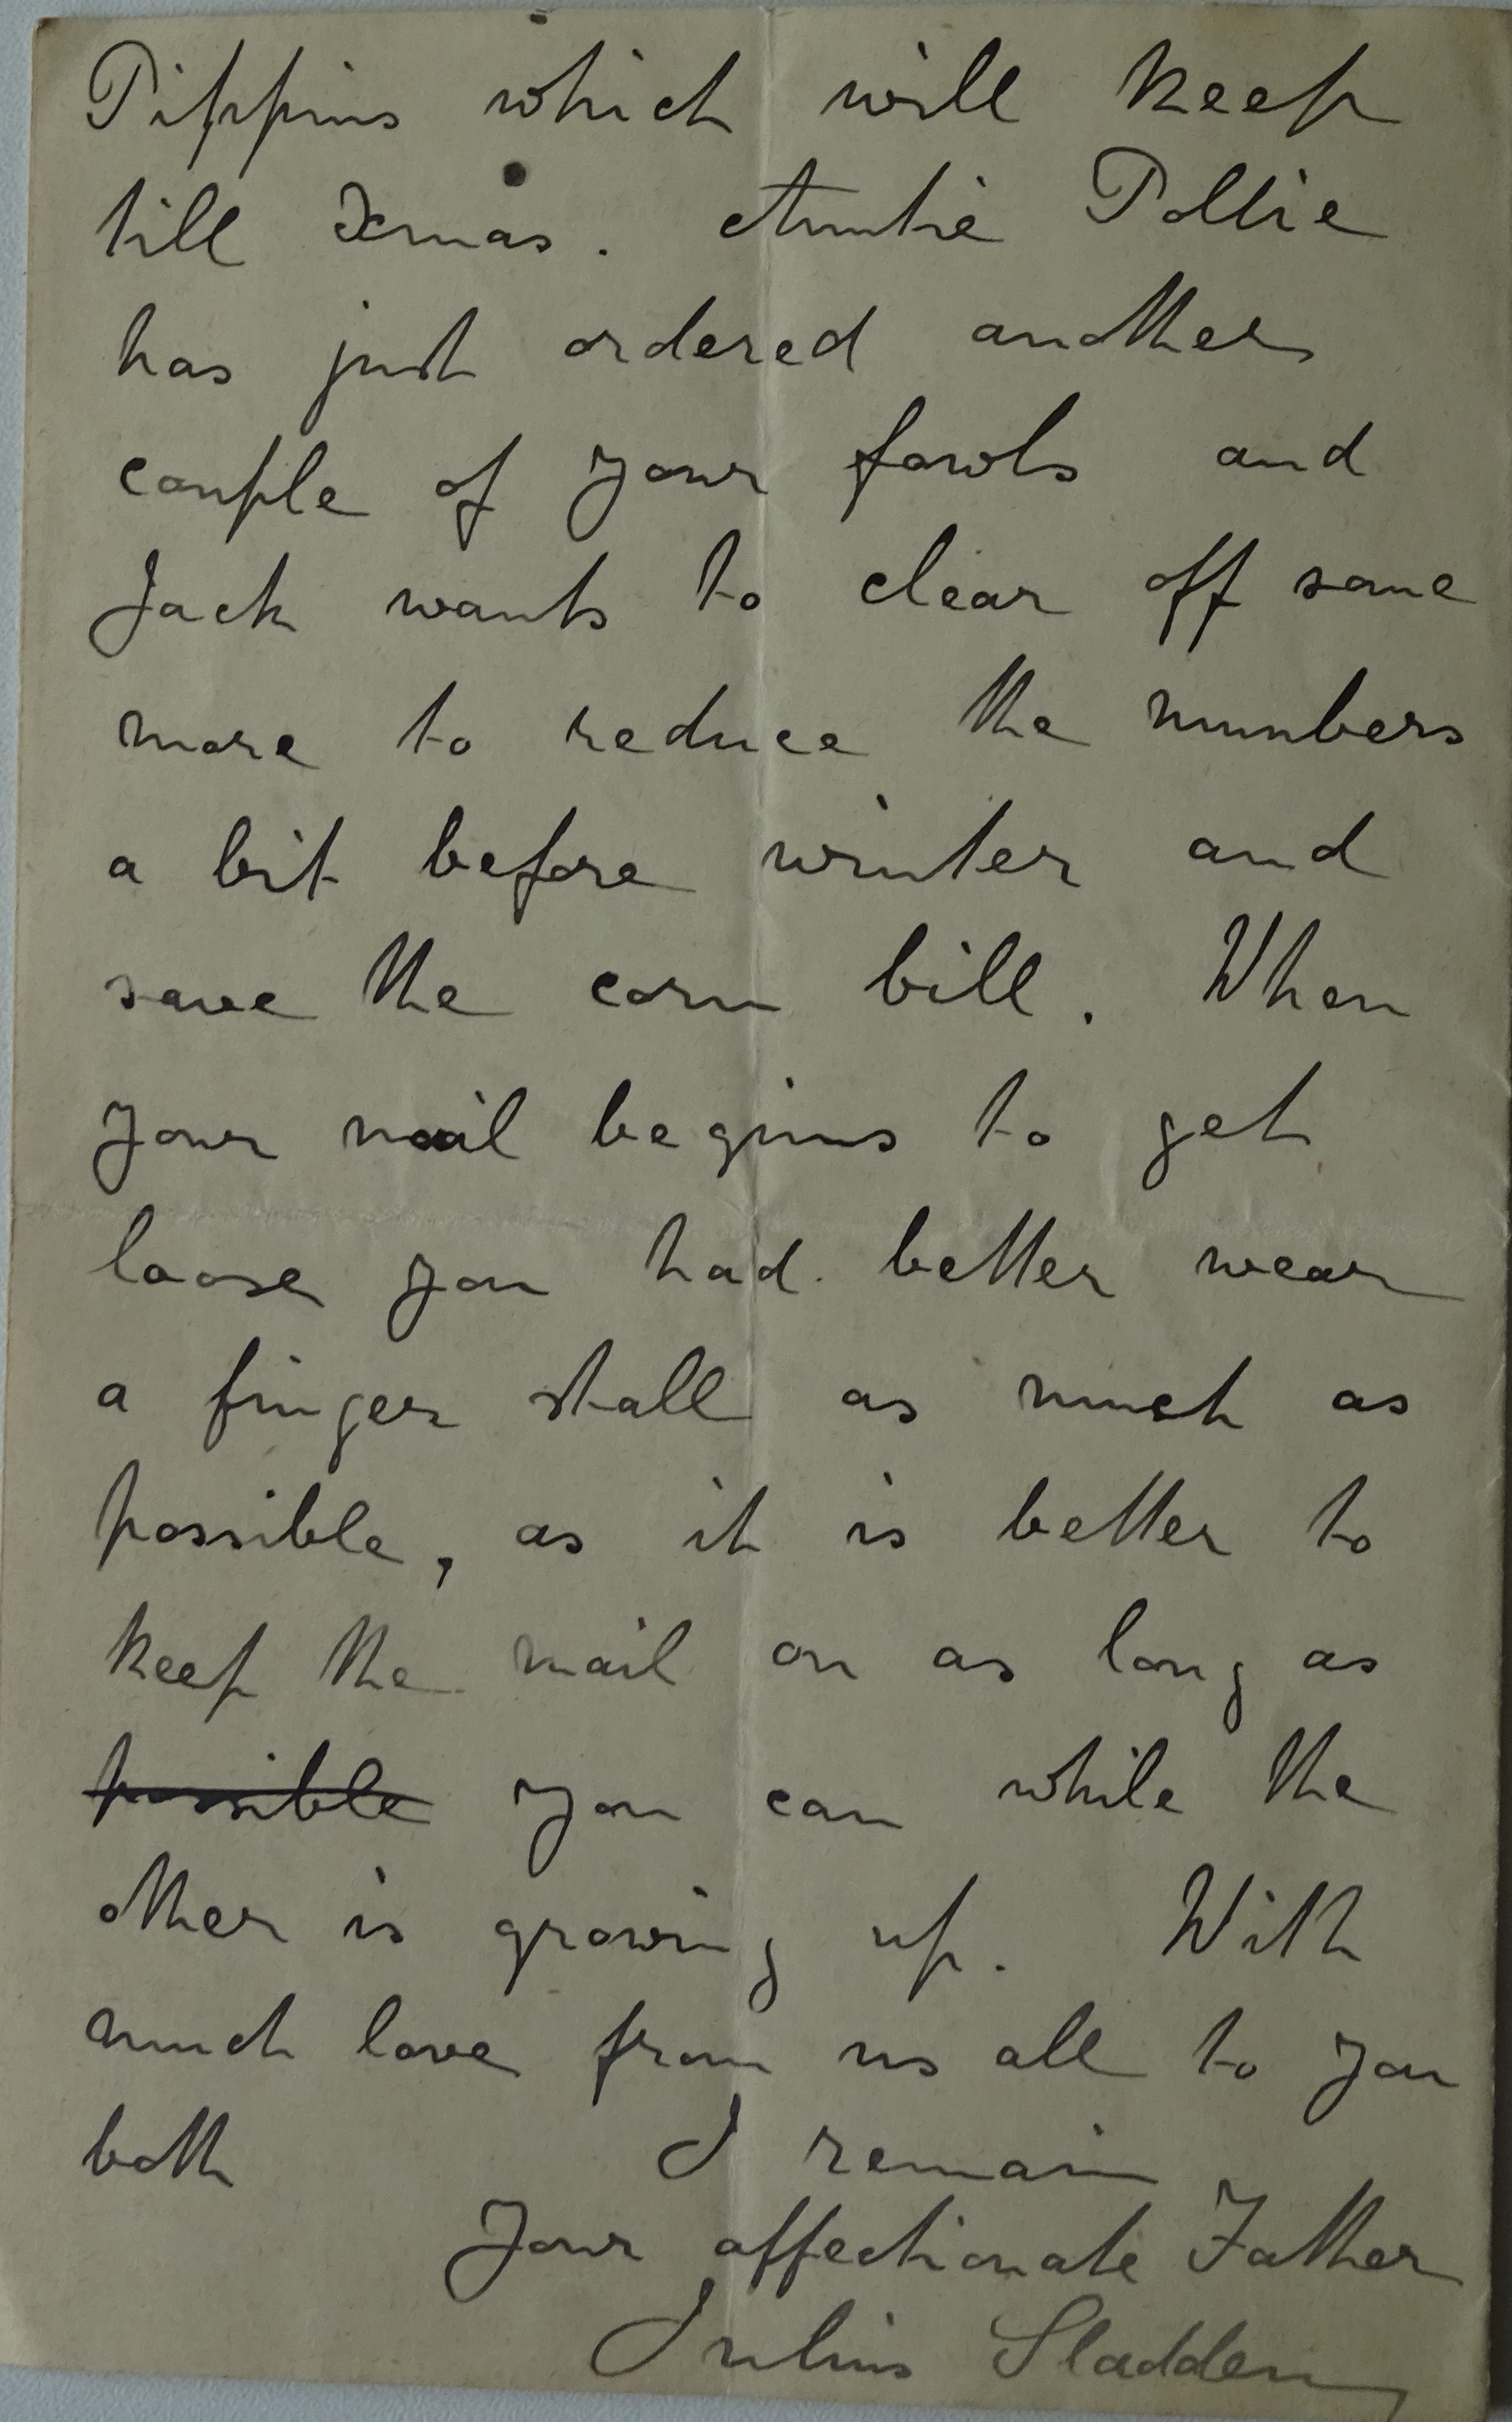 Pippins which will keep
till Xmas. Auntie Pollie
has just ordered another
couple of your fowls and
Jack wants to clear off some
more to reduce the numbers
a bit before winter and
save the corn bill. When
your nail begins to get
loose you had better wear
a finger stall as much as
possible, as it is better to
keep the nail on as long as
possible you can while the
other is growing up. With
much love from us all to you
both I remain
Your affectionate Father
Julius Sladden